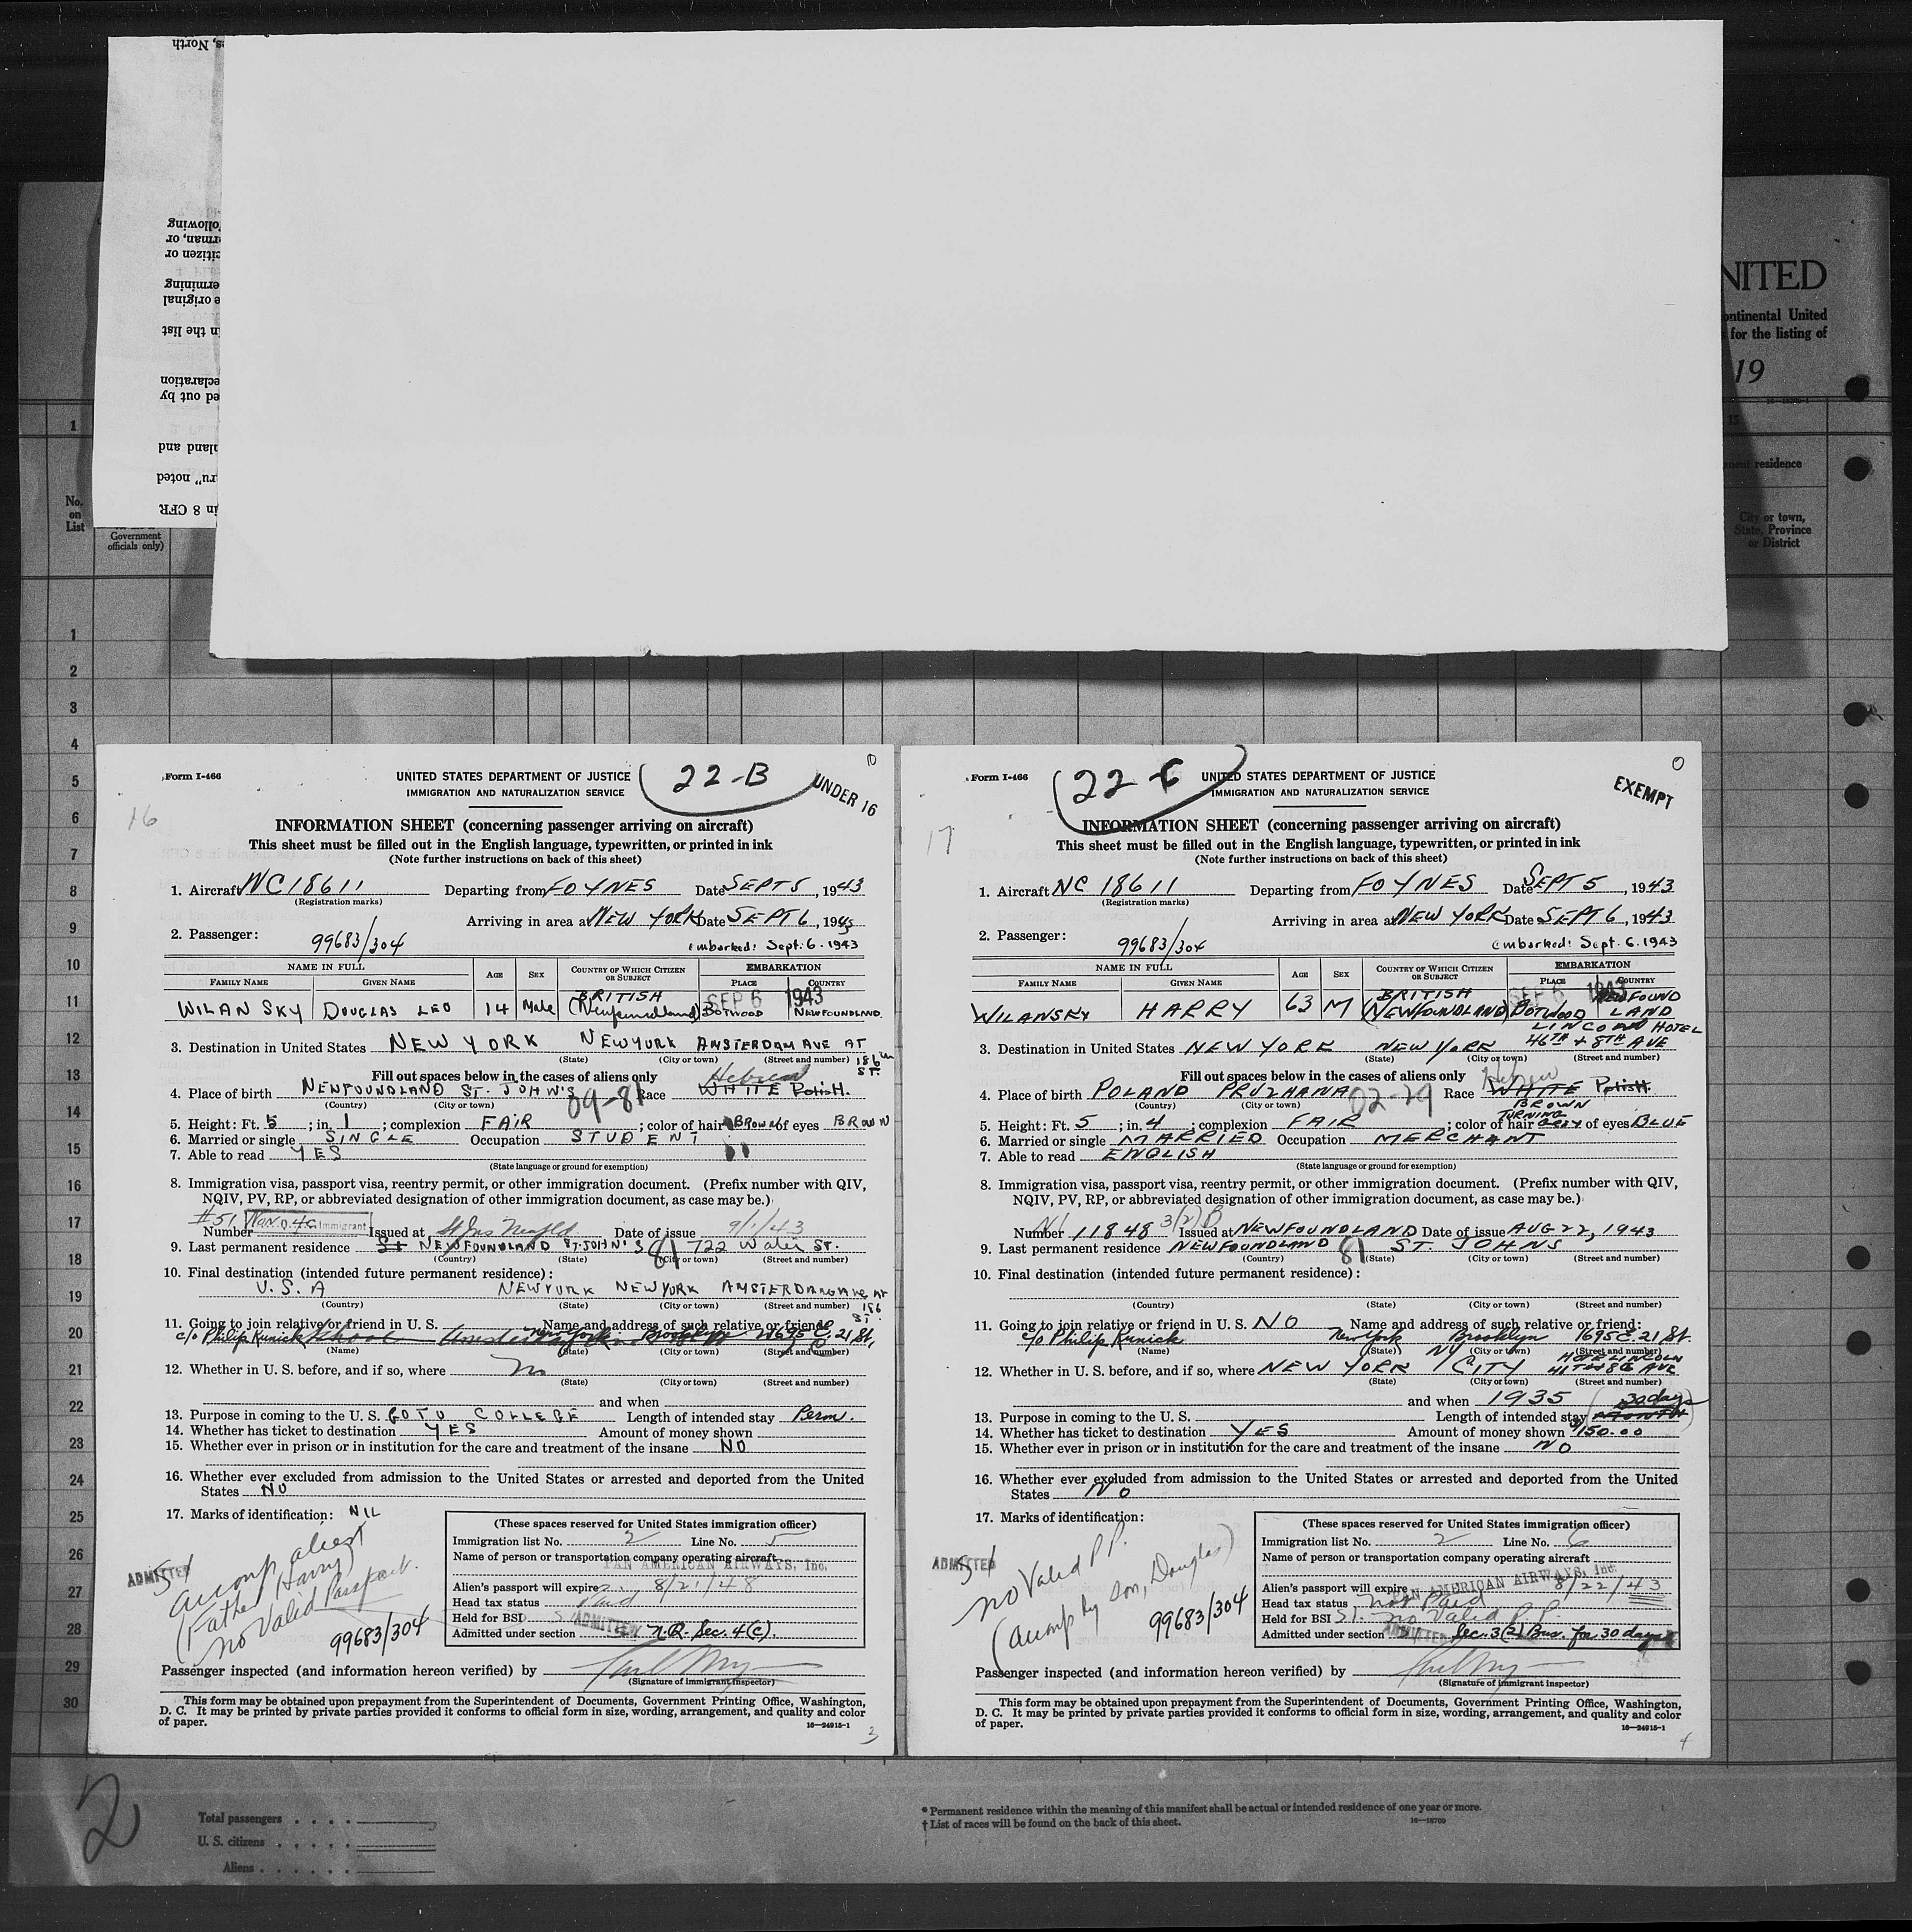 s, North
following
rman, or
citizen or
ermining
e original
n the list
eclaration
ed out by
land and
ru" noted
in 8 CFR
NITED
ontinental United
for the listing of
19
1
15
residence
No.
on
List
Government
officials only)
City or town,
State, Province
or District
1
2
3
4
5
6
7
8
9
10
11
12
13
14
15
16
17
18
19
20
21
22
23
24
25
26
27
28
29
30
Form I-466
UNITED STATES DEPARTMENT OF JUSTICE
IMMIGRATION AND NATURALIZATION SERVICE
22-B
UNDER 16
16
INFORMATION SHEET (concerning passenger arriving on aircraft)
This sheet must be filled out in the English language, typewritten, or printed in ink
(Note further instructions on back of this sheet)
1. Aircraft NC18611 Departing from FOYNES Date SEPT 5, 1943
(Registration marks)
Arriving in area at NEW YORK Date SEPT 6, 1943
2. Passenger: 99683/304 Embarked: Sept. 6. 1943
NAME IN FULL AGE SEX COUNTRY OF WHICH CITIZEN OR SUBJECT EMBARKATION
FAMILY NAME GIVEN NAME PLACE COUNTRY
SEP 6 1943
WILANSKY DOUGLAS LEO 14 Male BRITISH (Newfoundland) BOTWOOD NEWFOUNDLAND
3. Destination in United States NEW YORK NEW YORK AMSTERDAM AVE AT 186th ST.
(State) (City or town) (Street and number)
Fill out spaces below in the cases of aliens only Hebrew
4. Place of birth NEWFOUNDLAND ST. JOHN'S 09-81 Race WHITE Polish.
(Country) (City or town)
5. Height: Ft. 5; in. 1; complexion FAIR; color of hair BROWN of eyes BROWN
6. Married or single SINGLE Occupation STUDENT
7. Able to read YES
(State language or ground for exemption)
8. Immigration visa, passport visa, reentry permit, or other immigration document. (Prefix number with QIV,
NQIV, PV, RP, or abbreviated designation of other immigration document, as case may be.)
#51 Non Q. 4c Immigrant
Number Issued at St Jns Newfld Date of issue 9/1/43
9. Last permanent residence St NEWFOUNDLAND ST. JOHN'S 81 722 Water ST.
(Country) (State) (City or town) (Street and number)
10. Final destination (intended future permanent residence):
U.S.A NEW YORK NEW YORK AMSTERDAM AVE AT 186 ST.
(Country) (State) (City or town) (Street and number)
11. Going to join relative or friend in U. S. Name and address of such relative or friend:
c/o Philip Kunick New York Brooklyn 1695 E. 21 St.
(Name) (State) (City or town) (Street and number)
12. Whether in U. S. before, and if so, where No
(State) (City or town) (Street and number)
and when
13. Purpose in coming to the U. S. GO TO COLLEGE Length of intended stay Perm.
14. Whether has ticket to destination YES Amount of money shown
15. Whether ever in prison or in institution for the care and treatment of the insane NO
16. Whether ever excluded from admission to the United States or arrested and deported from the United
States NO
17. Marks of identification: NIL
ADMITTED
accomp alien
(Father Harry)
no Valid Passport.
99683/304
(These spaces reserved for United States immigration officer)
Immigration list No. 2 Line No. 5
Name of person or transportation company operating aircraft
PAN AMERICAN AIRWAYS, Inc.
Alien's passport will expire 8/21/48
Head tax status Paid
Held for BSI
ADMITTED
Admitted under section N.Q. Sec. 4(c).
Passenger inspected (and information hereon verified) by
(Signature of immigrant inspector)
This form may be obtained upon prepayment from the Superintendent of Documents, Government Printing Office, Washington,
D. C. It may be printed by private parties provided it conforms to official form in size, wording, arrangement, and quality and color
of paper.
16—24915-1
3
Form I-466
22-C
UNITED STATES DEPARTMENT OF JUSTICE
IMMIGRATION AND NATURALIZATION SERVICE
EXEMPT
17
INFORMATION SHEET (concerning passenger arriving on aircraft)
This sheet must be filled out in the English language, typewritten, or printed in ink
(Note further instructions on back of this sheet)
1. Aircraft NC 18611 Departing from FOYNES Date SEPT 5, 1943
(Registration marks)
Arriving in area at NEW YORK Date SEPT 6, 1943
2. Passenger: 99683/304 Embarked: Sept. 6. 1943
NAME IN FULL AGE SEX COUNTRY OF WHICH CITIZEN OR SUBJECT EMBARKATION
FAMILY NAME GIVEN NAME PLACE COUNTRY
SEP 6 1943
WILANSKY HARRY 63 M BRITISH (NEWFOUNDLAND) BOTWOOD NEWFOUNDLAND
LINCOLN HOTEL
3. Destination in United States NEW YORK NEW YORK 46TH + 8TH AVE
(State) (City or town) (Street and number)
Fill out spaces below in the cases of aliens only Hebrew
4. Place of birth POLAND PRUZHANA 02-29 Race WHITE Polish.
(Country) (City or town)
BROWN TURNING
5. Height: Ft. 5; in. 4; complexion FAIR; color of hair GREY of eyes BLUE
6. Married or single MARRIED Occupation MERCHANT
7. Able to read ENGLISH
(State language or ground for exemption)
8. Immigration visa, passport visa, reentry permit, or other immigration document. (Prefix number with QIV,
NQIV, PV, RP, or abbreviated designation of other immigration document, as case may be.)
Number NI 11848 3(2)B Issued at NEWFOUNDLAND Date of issue AUG 22, 1943
9. Last permanent residence NEWFOUNDLAND 81 ST. JOHNS
(Country) (State) (City or town) (Street and number)
10. Final destination (intended future permanent residence):
(Country) (State) (City or town) (Street and number)
11. Going to join relative or friend in U. S. NO Name and address of such relative or friend:
c/o Philip Kunick New York Brooklyn 1695 E. 21 St.
(Name) (State) (City or town) (Street and number)
12. Whether in U. S. before, and if so, where NEW YORK NY CITY HOTEL LINCOLN
(State) (City or town) (Street and number)
and when 1935
30 days
13. Purpose in coming to the U. S. Length of intended stay
14. Whether has ticket to destination YES Amount of money shown $150.00
15. Whether ever in prison or in institution for the care and treatment of the insane NO
16. Whether ever excluded from admission to the United States or arrested and deported from the United
States NO
17. Marks of identification:
ADMITTED
no Valid P.P.
(accomp by son, Douglas)
99683/304
(These spaces reserved for United States immigration officer)
Immigration list No. 2 Line No. 6
Name of person or transportation company operating aircraft
PAN AMERICAN AIRWAYS, Inc.
Alien's passport will expire 8/22/43
Head tax status Not Paid
Held for BSI no Valid P.P.
ADMITTED
Admitted under section Sec. 3(2) Bus. for 30 days
Passenger inspected (and information hereon verified) by
(Signature of immigrant inspector)
This form may be obtained upon prepayment from the Superintendent of Documents, Government Printing Office, Washington,
D. C. It may be printed by private parties provided it conforms to official form in size, wording, arrangement, and quality and color
of paper.
16—24915-1
4
2
Total passengers
U. S. citizens
Aliens
* Permanent residence within the meaning of this manifest shall be actual or intended residence of one year or more.
† List of races will be found on the back of this sheet.
16—18709